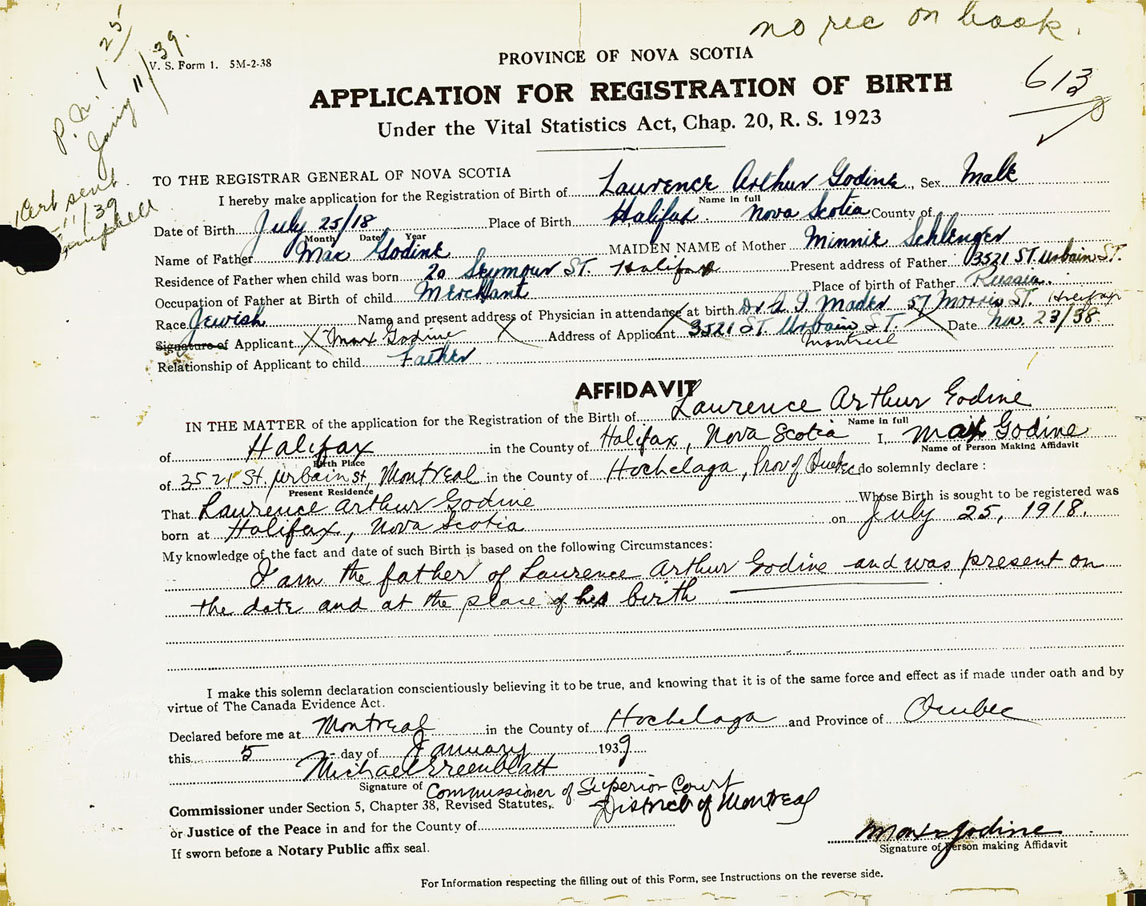 no rec on book.
V. S. Form 1. 5M-2-38
P.N. 1 25
Jany 11/39.
Cert sent.
11/39
Campbell
613
PROVINCE OF NOVA SCOTIA
APPLICATION FOR REGISTRATION OF BIRTH
Under the Vital Statistics Act, Chap. 20, R. S. 1923
TO THE REGISTRAR GENERAL OF NOVA SCOTIA
I hereby make application for the Registration of Birth of Laurence Arthur Godine Sex Male
Name in full
Date of Birth July 25/18 Place of Birth Halifax Nova Scotia County of
Month Date Year
Name of Father Max Godine MAIDEN NAME of Mother Minnie Schlenger
Residence of Father when child was born 20 Seymour ST. Halifax Present address of Father 3521 ST. Urbain ST.
Occupation of Father at Birth of child Merchant Place of birth of Father Russia.
Race Jewish Name and present address of Physician in attendance at birth Dr A I Mader 57 Morris ST. Halifax
Signature of Applicant X Max Godine X Address of Applicant X 3521 ST. Urbain ST. X Date Nov. 23/38.
Montreal
Relationship of Applicant to child Father
AFFIDAVIT
IN THE MATTER of the application for the Registration of the Birth of Laurence Arthur Godine
Name in full
of Halifax in the County of Halifax, Nova Scotia I, Max Godine
Birth Place Name of Person Making Affidavit
of 3521 St. Urbain St, Montreal in the County of Hochelaga, Prov of Quebec do solemnly declare :
Present Residence
That Laurence Arthur Godine Whose Birth is sought to be registered was
born at Halifax, Nova Scotia on July 25, 1918.
My knowledge of the fact and date of such Birth is based on the following Circumstances:
I am the father of Laurence Arthur Godine and was present on
the date and at the place of his birth
I make this solemn declaration conscientiously believing it to be true, and knowing that it is of the same force and effect as if made under oath and by
virtue of The Canada Evidence Act.
Declared before me at Montreal in the County of Hochelaga and Province of Quebec
this 5 day of January 1939
Michael Greenblatt
Signature of Commissioner of Superior Court
Commissioner under Section 5, Chapter 38, Revised Statutes, District of Montreal
or Justice of the Peace in and for the County of
Max Godine
If sworn before a Notary Public affix seal. Signature of Person making Affidavit
For Information respecting the filling out of this Form, see Instructions on the reverse side.